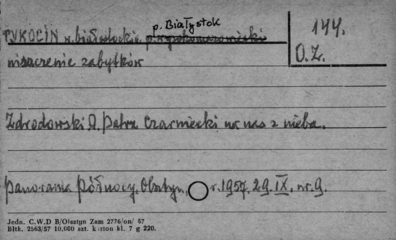 p. Białystok
TYKOCIN w. białostockie p. wysokomazowiecki
144.
O.Z.
niszczenie zabytków
Zdrodowski A. patrz Czarniecki na nas z nieba.
panorama północy. Olsztyn. r. 1957. 29. IX. nr. 9.
Jedn. C.W.D B/Olsztyn Zam 2776/on/ 57
Bltk. 2563/57 10,000 szt. karton kl. 7 g 220.